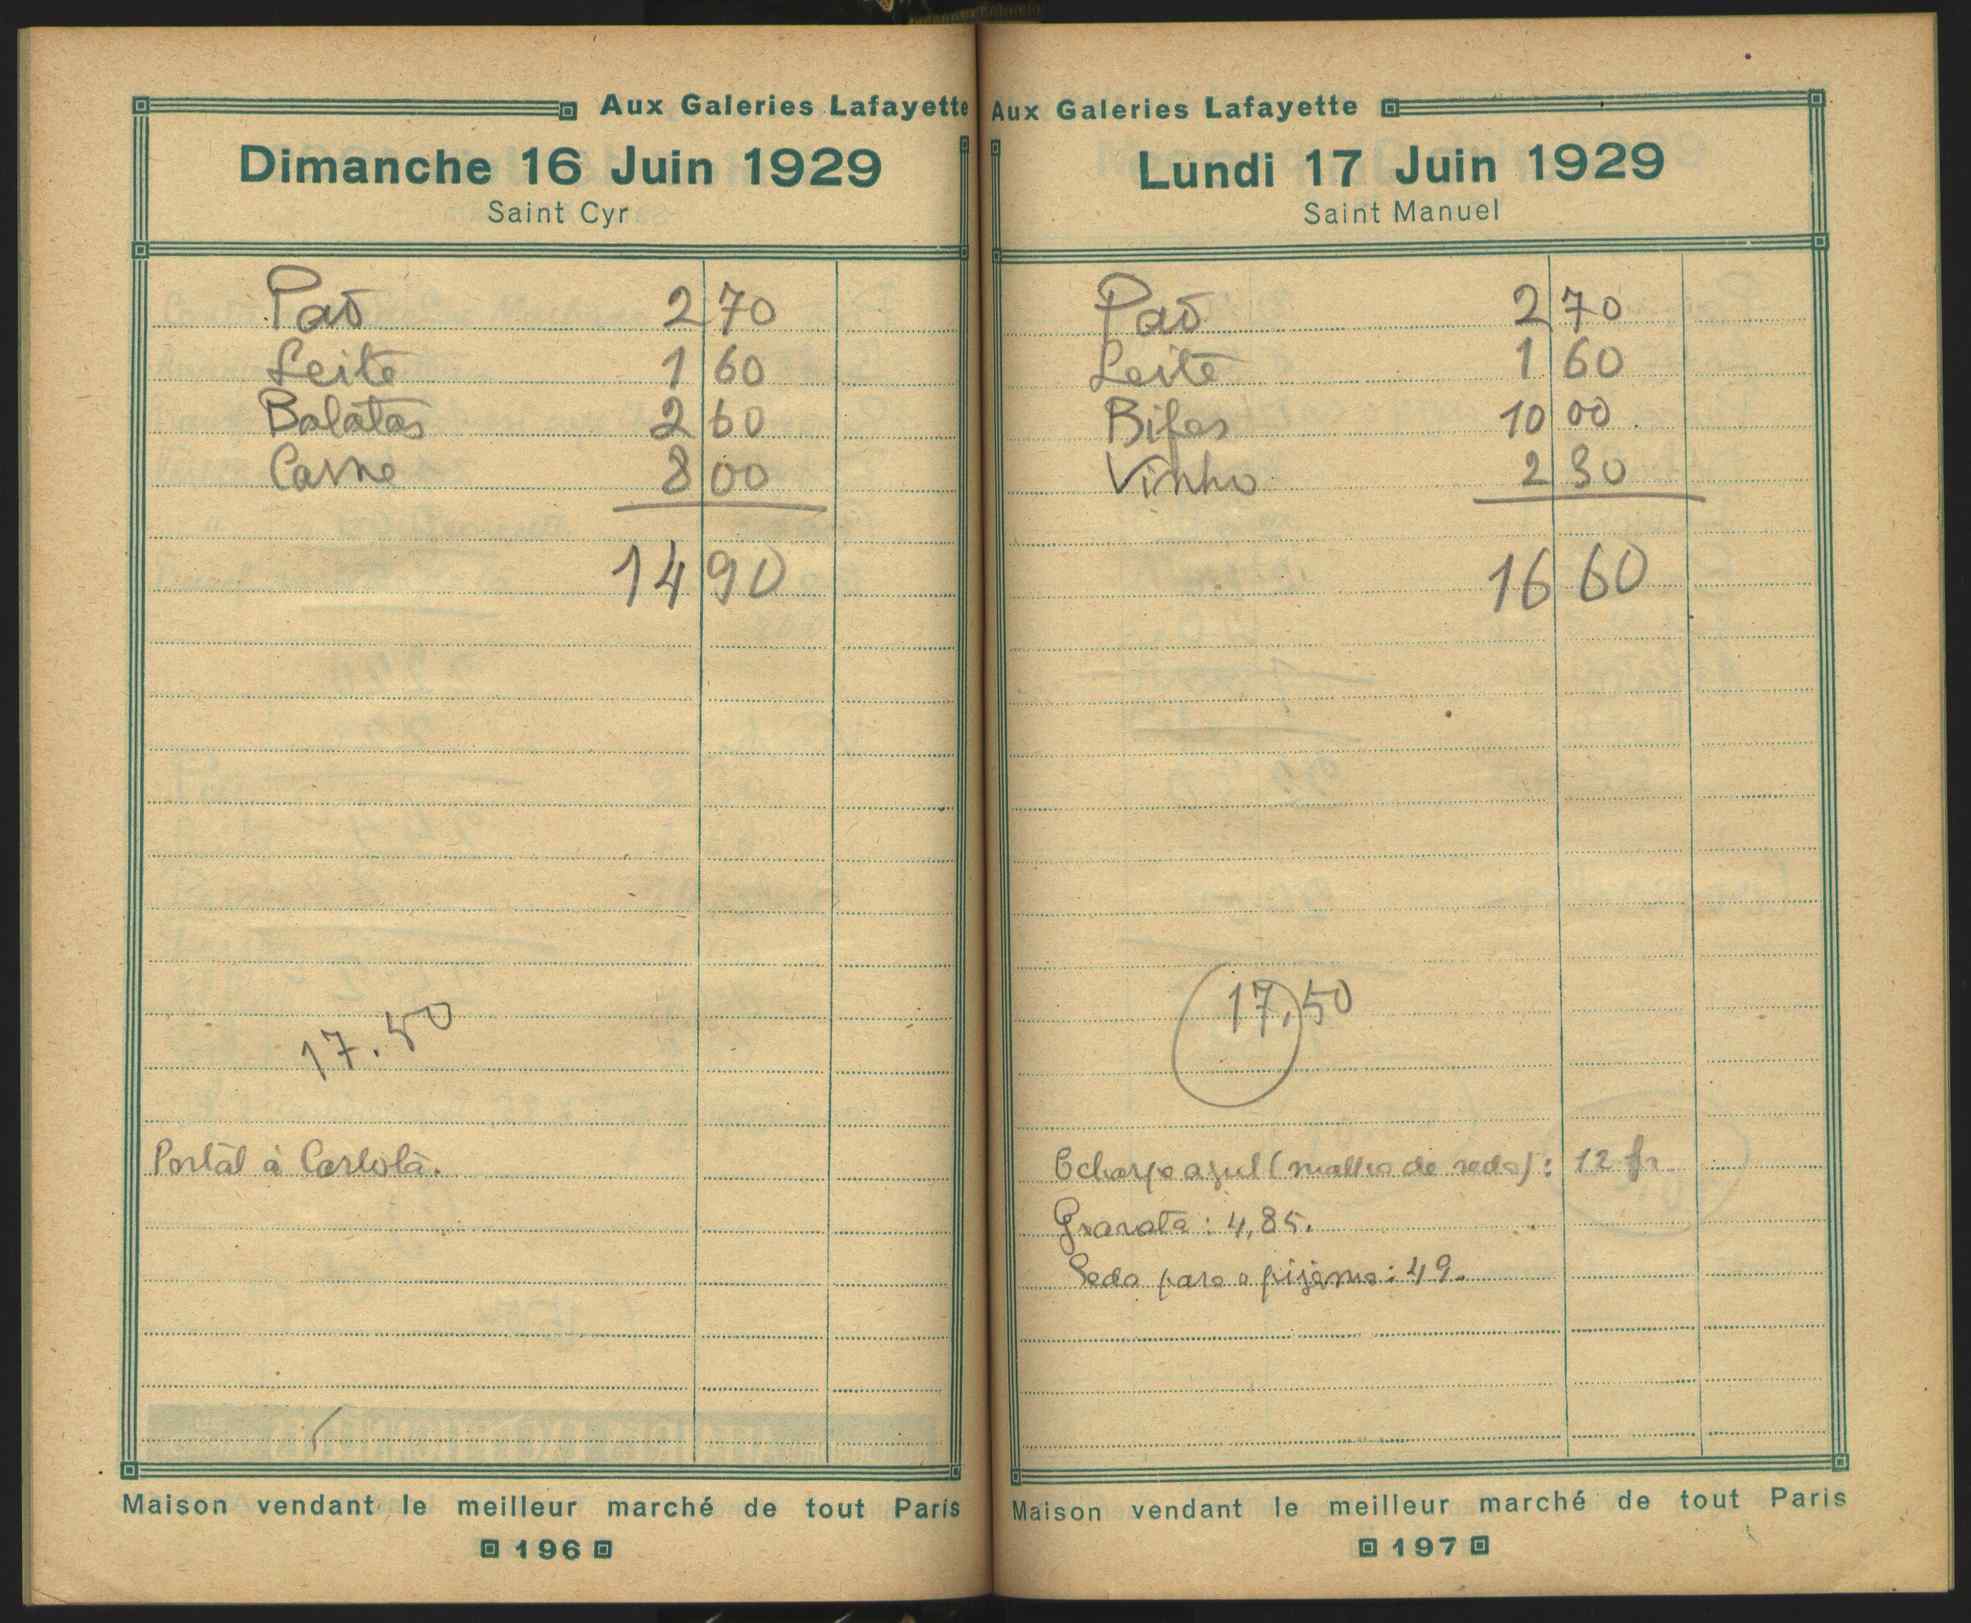 Aux Galeries Lafayette
Dimanche 16 Juin 1929
Saint Cyr
Paõ 2 70
Leite 1 60
Batatas 2 60
Carne 8 00
14 90
17.50
Postal à Carlota.
Maison vendant le meilleur marché de tout Paris
196
Aux Galeries Lafayette
Lundi 17 Juin 1929
Saint Manuel
Paõ 2 70
Leite 1 60
Bifes 10 00
Vinho 2 30
16 60
17,50
Echarpe azul (malha de seda): 12 fr.
Gravata: 4,85.
Seda para o pijama: 49.
Maison vendant le meilleur marché de tout Paris
197